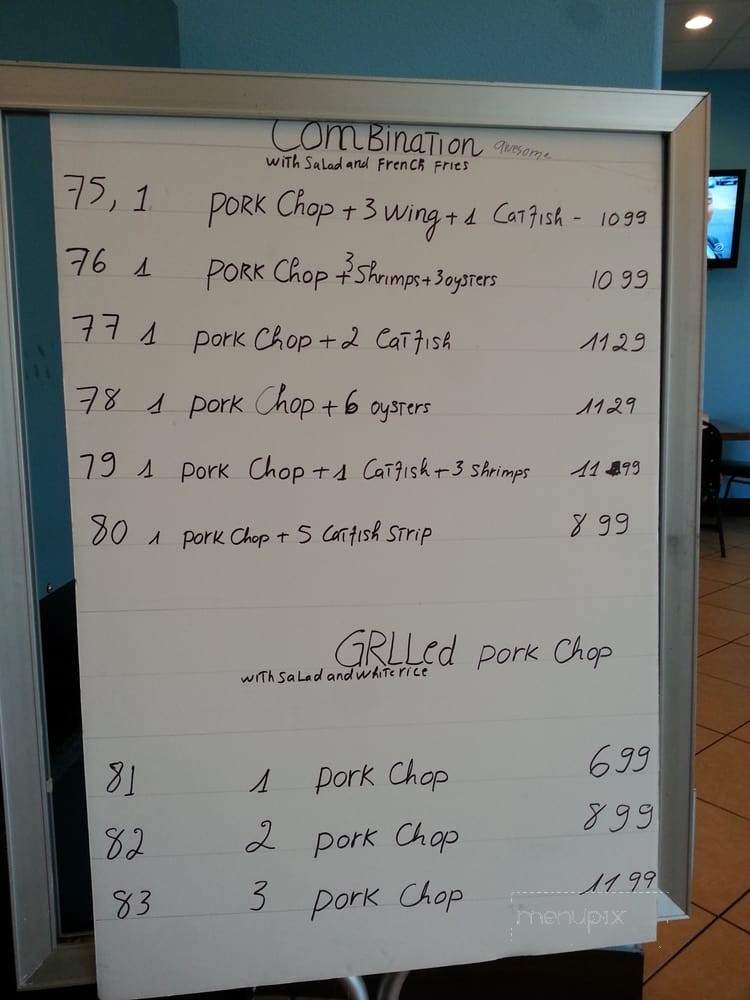 COMBINATION awesome
WITH Salad and FRENCH FRIES
75, 1 PORK Chop + 3 wing + 1 CATfish - 1099
76 1 PORK Chop + 3 Shrimps + 3 oysters 1099
77 1 pork Chop + 2 CATfish 1129
78 1 pork Chop + 6 oysters 1129
79 1 pork Chop + 1 Catfish + 3 shrimps 11 99
80 1 pork Chop + 5 Catfish STrip 899
GRLLed pork Chop
with salad and white rice
81 1 pork Chop 699
82 2 pork Chop 899
83 3 pork Chop 1199
menupix